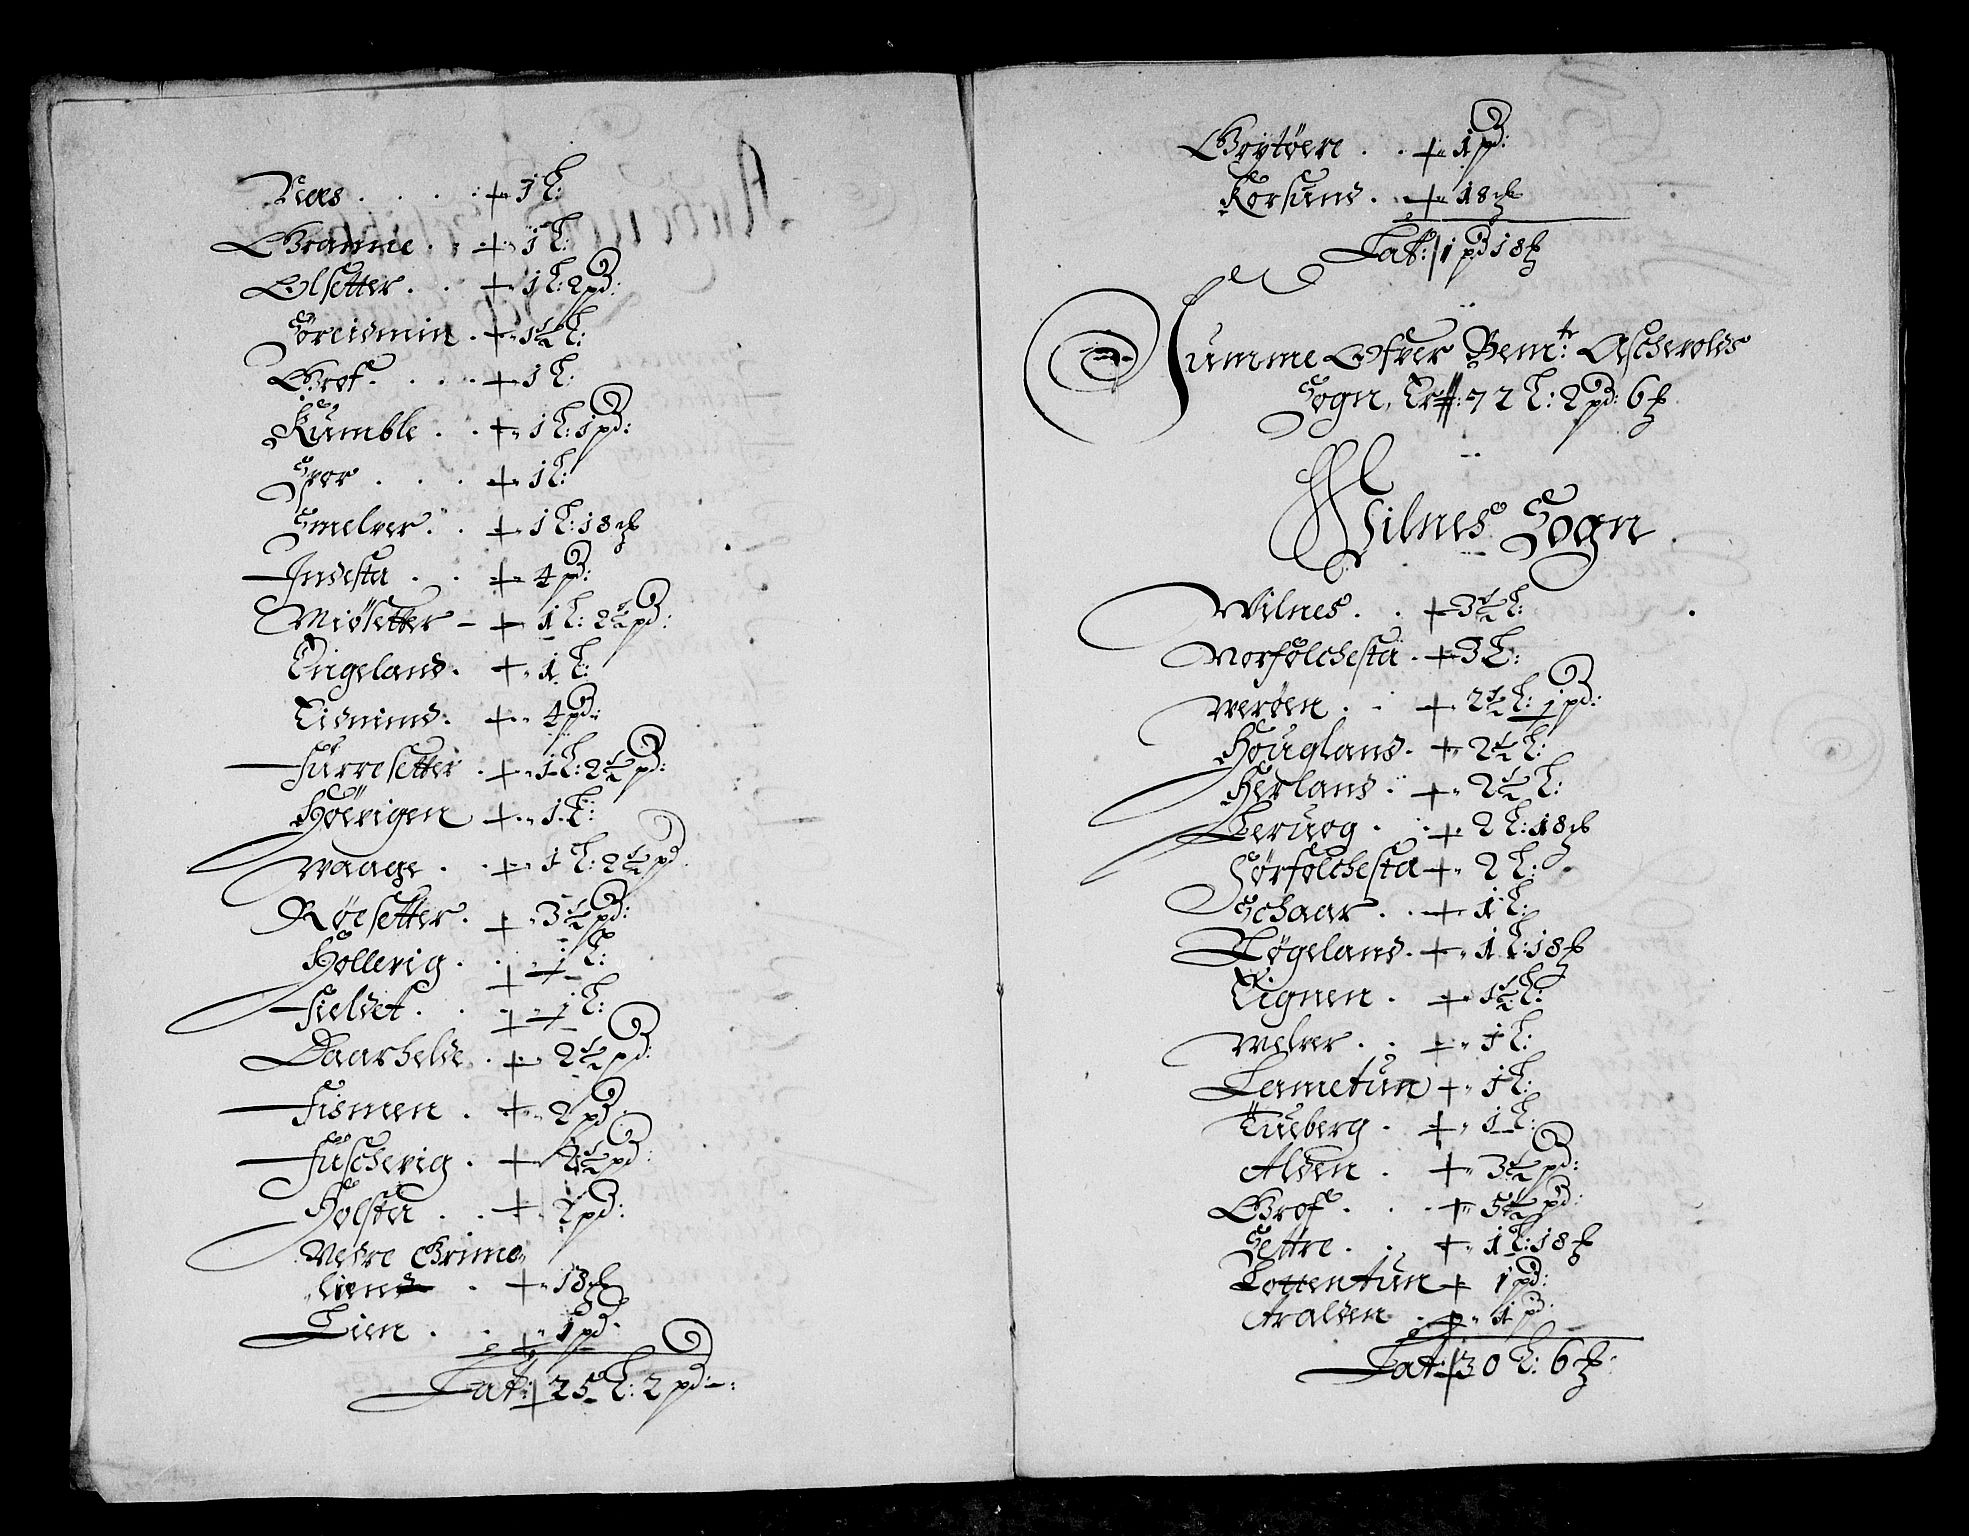 Næs . . . . + 1 L:
Gramme . . + 1 L:
Olsetter . . + 1 L: 2 pd:
Søreidmin . + 1½ L:
Grof . . . . + 1 L:
Kumble . . + 1 L: 1 pd:
Spor . . . + 1 L:
Smelver . . + 1 L: 18 ℔
Indesta . . + 4 pd:
Miøsetter – + 1 L: 2½ pd:
Engeland . + 1 L:
Tidnind . + 4 pd:
Furresetter . + 1 L: 2½ pd:
Høevigen + 1 L:
Waage . . + 1 L: 2½ pd
Røesetter . + 3½ pd:
Hollevig . . + 1 L:
Fieldet . . + 1 L:
Daarhelde . + 2½ pd:
Fismen . + 2 pd
Fuschevig . + 4½ pd:
Holsta . . + 2 pd:
Nedre Grime
liend . + 18 ℔
Lien . . + 1 pd
Lat: 25 L: 2 pd –:
Grytøen . . + 1 pd:
Korsund . + 18 ℔
Lat: 1 pd 18 ℔
Summe Ofver Bemt: Aschevolds
Sogn, Er: 72 L: 2 pd: 6 ℔
Wilnes Sogn .
Wilnes . . + 3½ L:
Norfolchesta . + 3 L:
Werøen . . + 2½ L: 1 pd:
Hougland . + 2½ L:
Herland . + 2½ L:
Leruog . + 2 L: 18 ℔
Sørfolchesta + 2 L:
Schaar . . + 1 L:
Løgeland . + 1 L: 18 ℔
Tignen . + 1½ L:
Welver . . + 1 L:
Lemetun + 1 L:
Tueberg . + 1 L:
Alden . + 3½ pd:
Grof . . . + 5½ pd:
Settre . . + 1 L: 18 ℔
Lottentun + 1 pd:
Aralden . + 1 pd:
Lat: 30 L: 6 ℔: